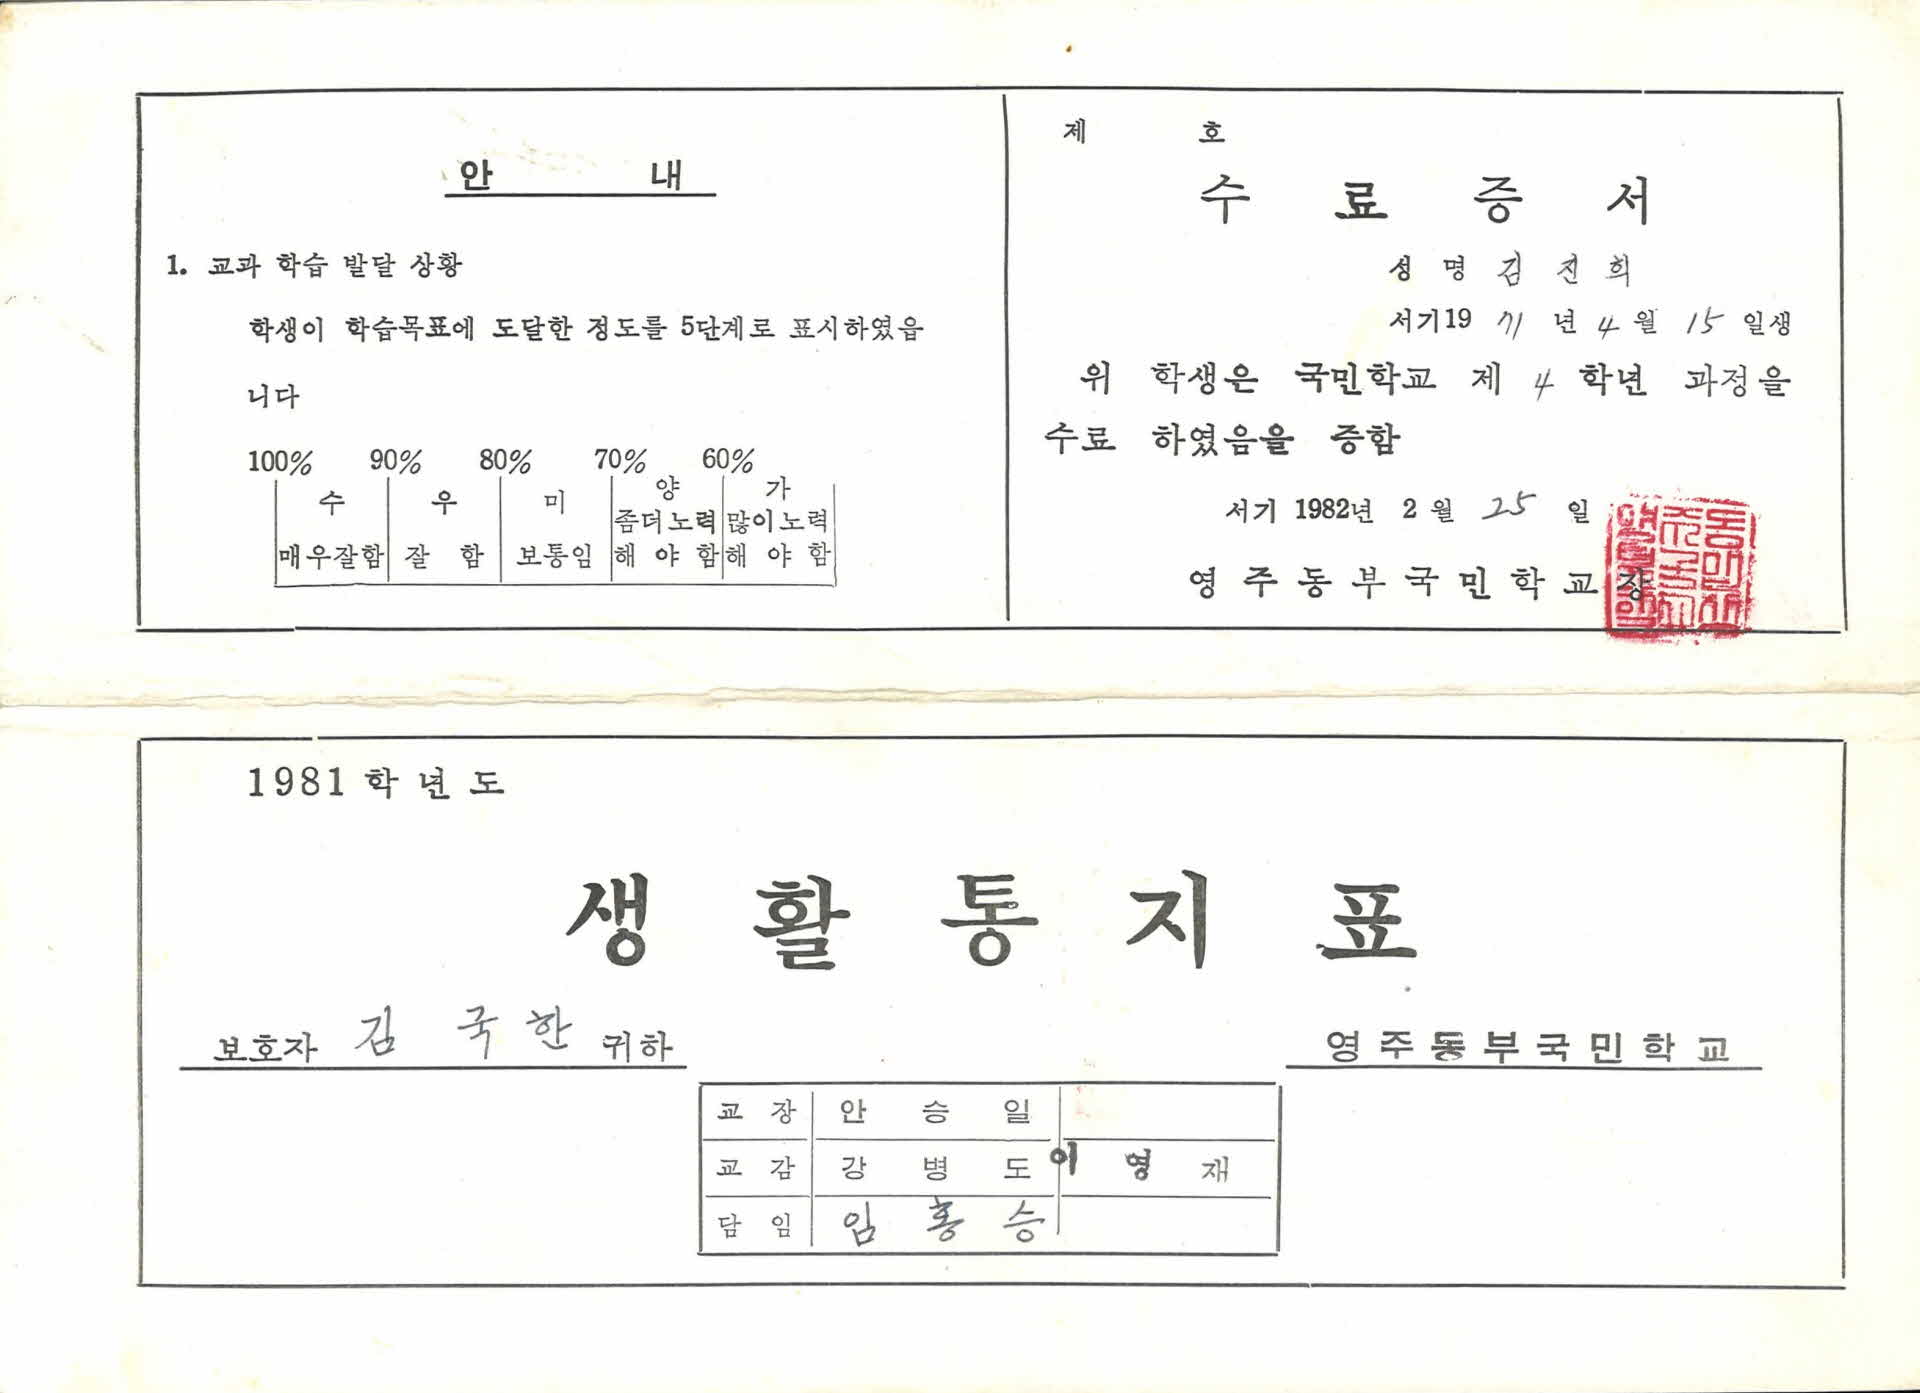 안 내
1. 교과 학습 발달 상황
학생이 학습목표에 도달한 정도를 5단계로 표시하였읍
니다
100% 90% 80% 70% 60%
수 우 미 양 가
좀더노력 많이노력
매우잘함 잘 함 보통임 해 야 함 해 야 함
제 호
수 료 증 서
성 명 김 진 희
서기19 71 년 4 월 15 일생
위 학생은 국민학교 제 4 학년 과정을
수료 하였음을 증함
서기 1982년 2 월 25 일
영 주 동 부 국 민 학 교 장
1981 학 년 도
생 활 통 지 표
보호자 김 국 한 귀하
영 주 동 부 국 민 학 교
교 장 안 승 일
교 감 강 병 도 이 영 재
담 임 임 홍 승